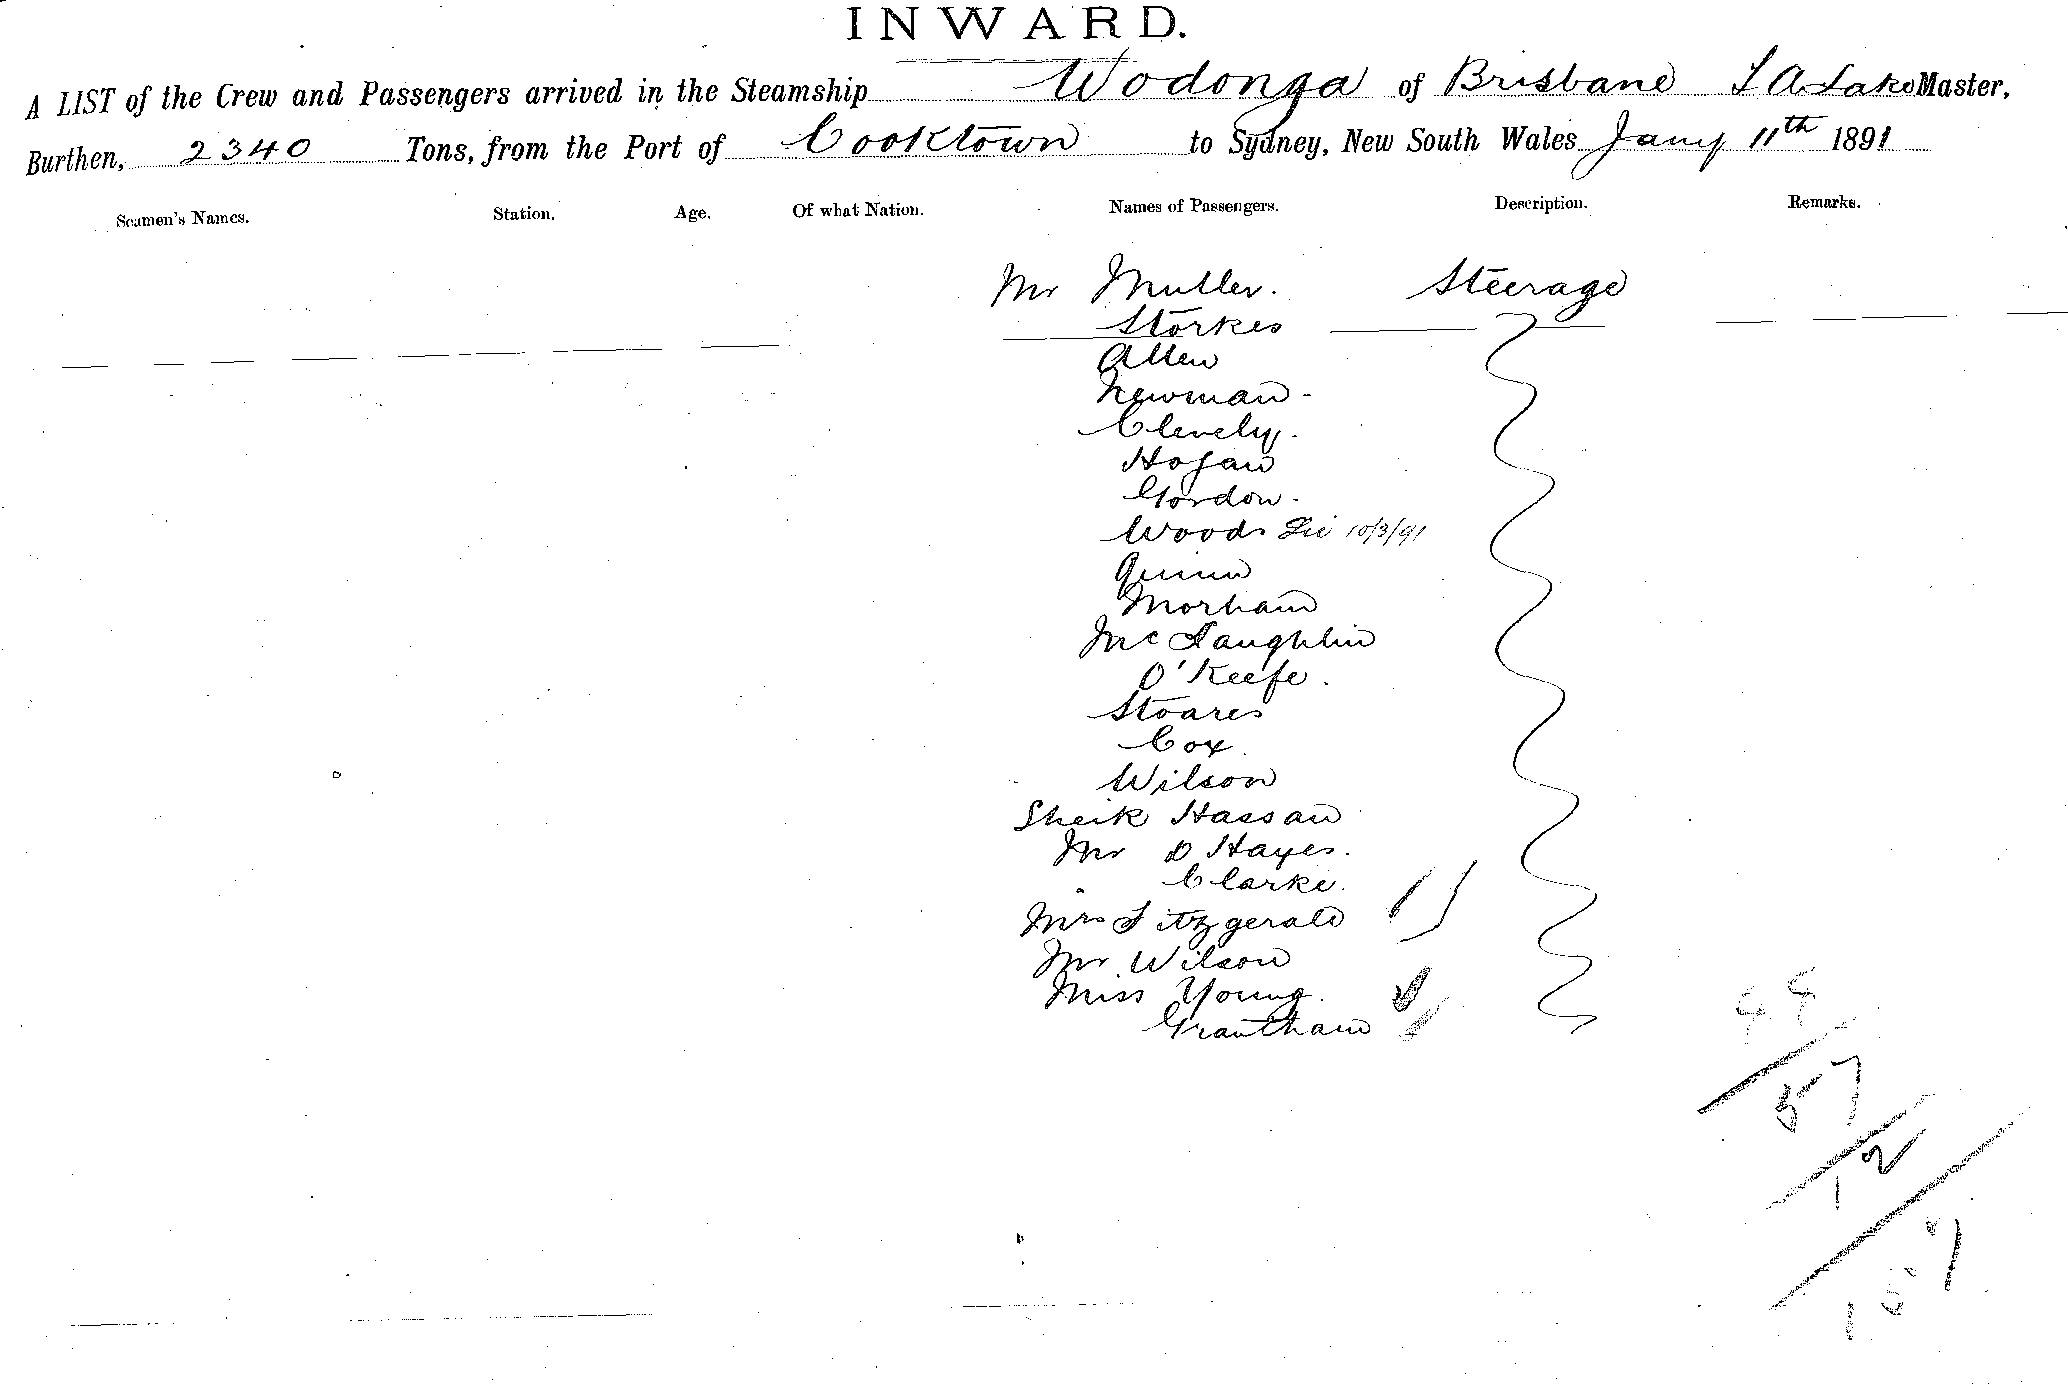 INWARD.
A LIST of the Crew and Passengers arrived in the Steamship Wodonga of Brisbane Lake Master,
Burthen, 2340 Tons, from the Port of Cooktown to Sydney, New South Wales Jany 11th 1891
Seamen's Names. Station. Age. Of what Nation. Names of Passengers. Description. Remarks.
Mr Muller. Steerage
Storkes
Allen
Newman
Clevely.
Hogan
Gordon.
Woods 10/3/91
Quinn
Morham
McLaughlin
O'Keefe.
Stoares
Cox.
Wilson
Sheik Hassan
Mr D Hayes.
Clarke.
Mrs Fitzgerald
Mr Wilson
Miss Young.
Grantham
57
12